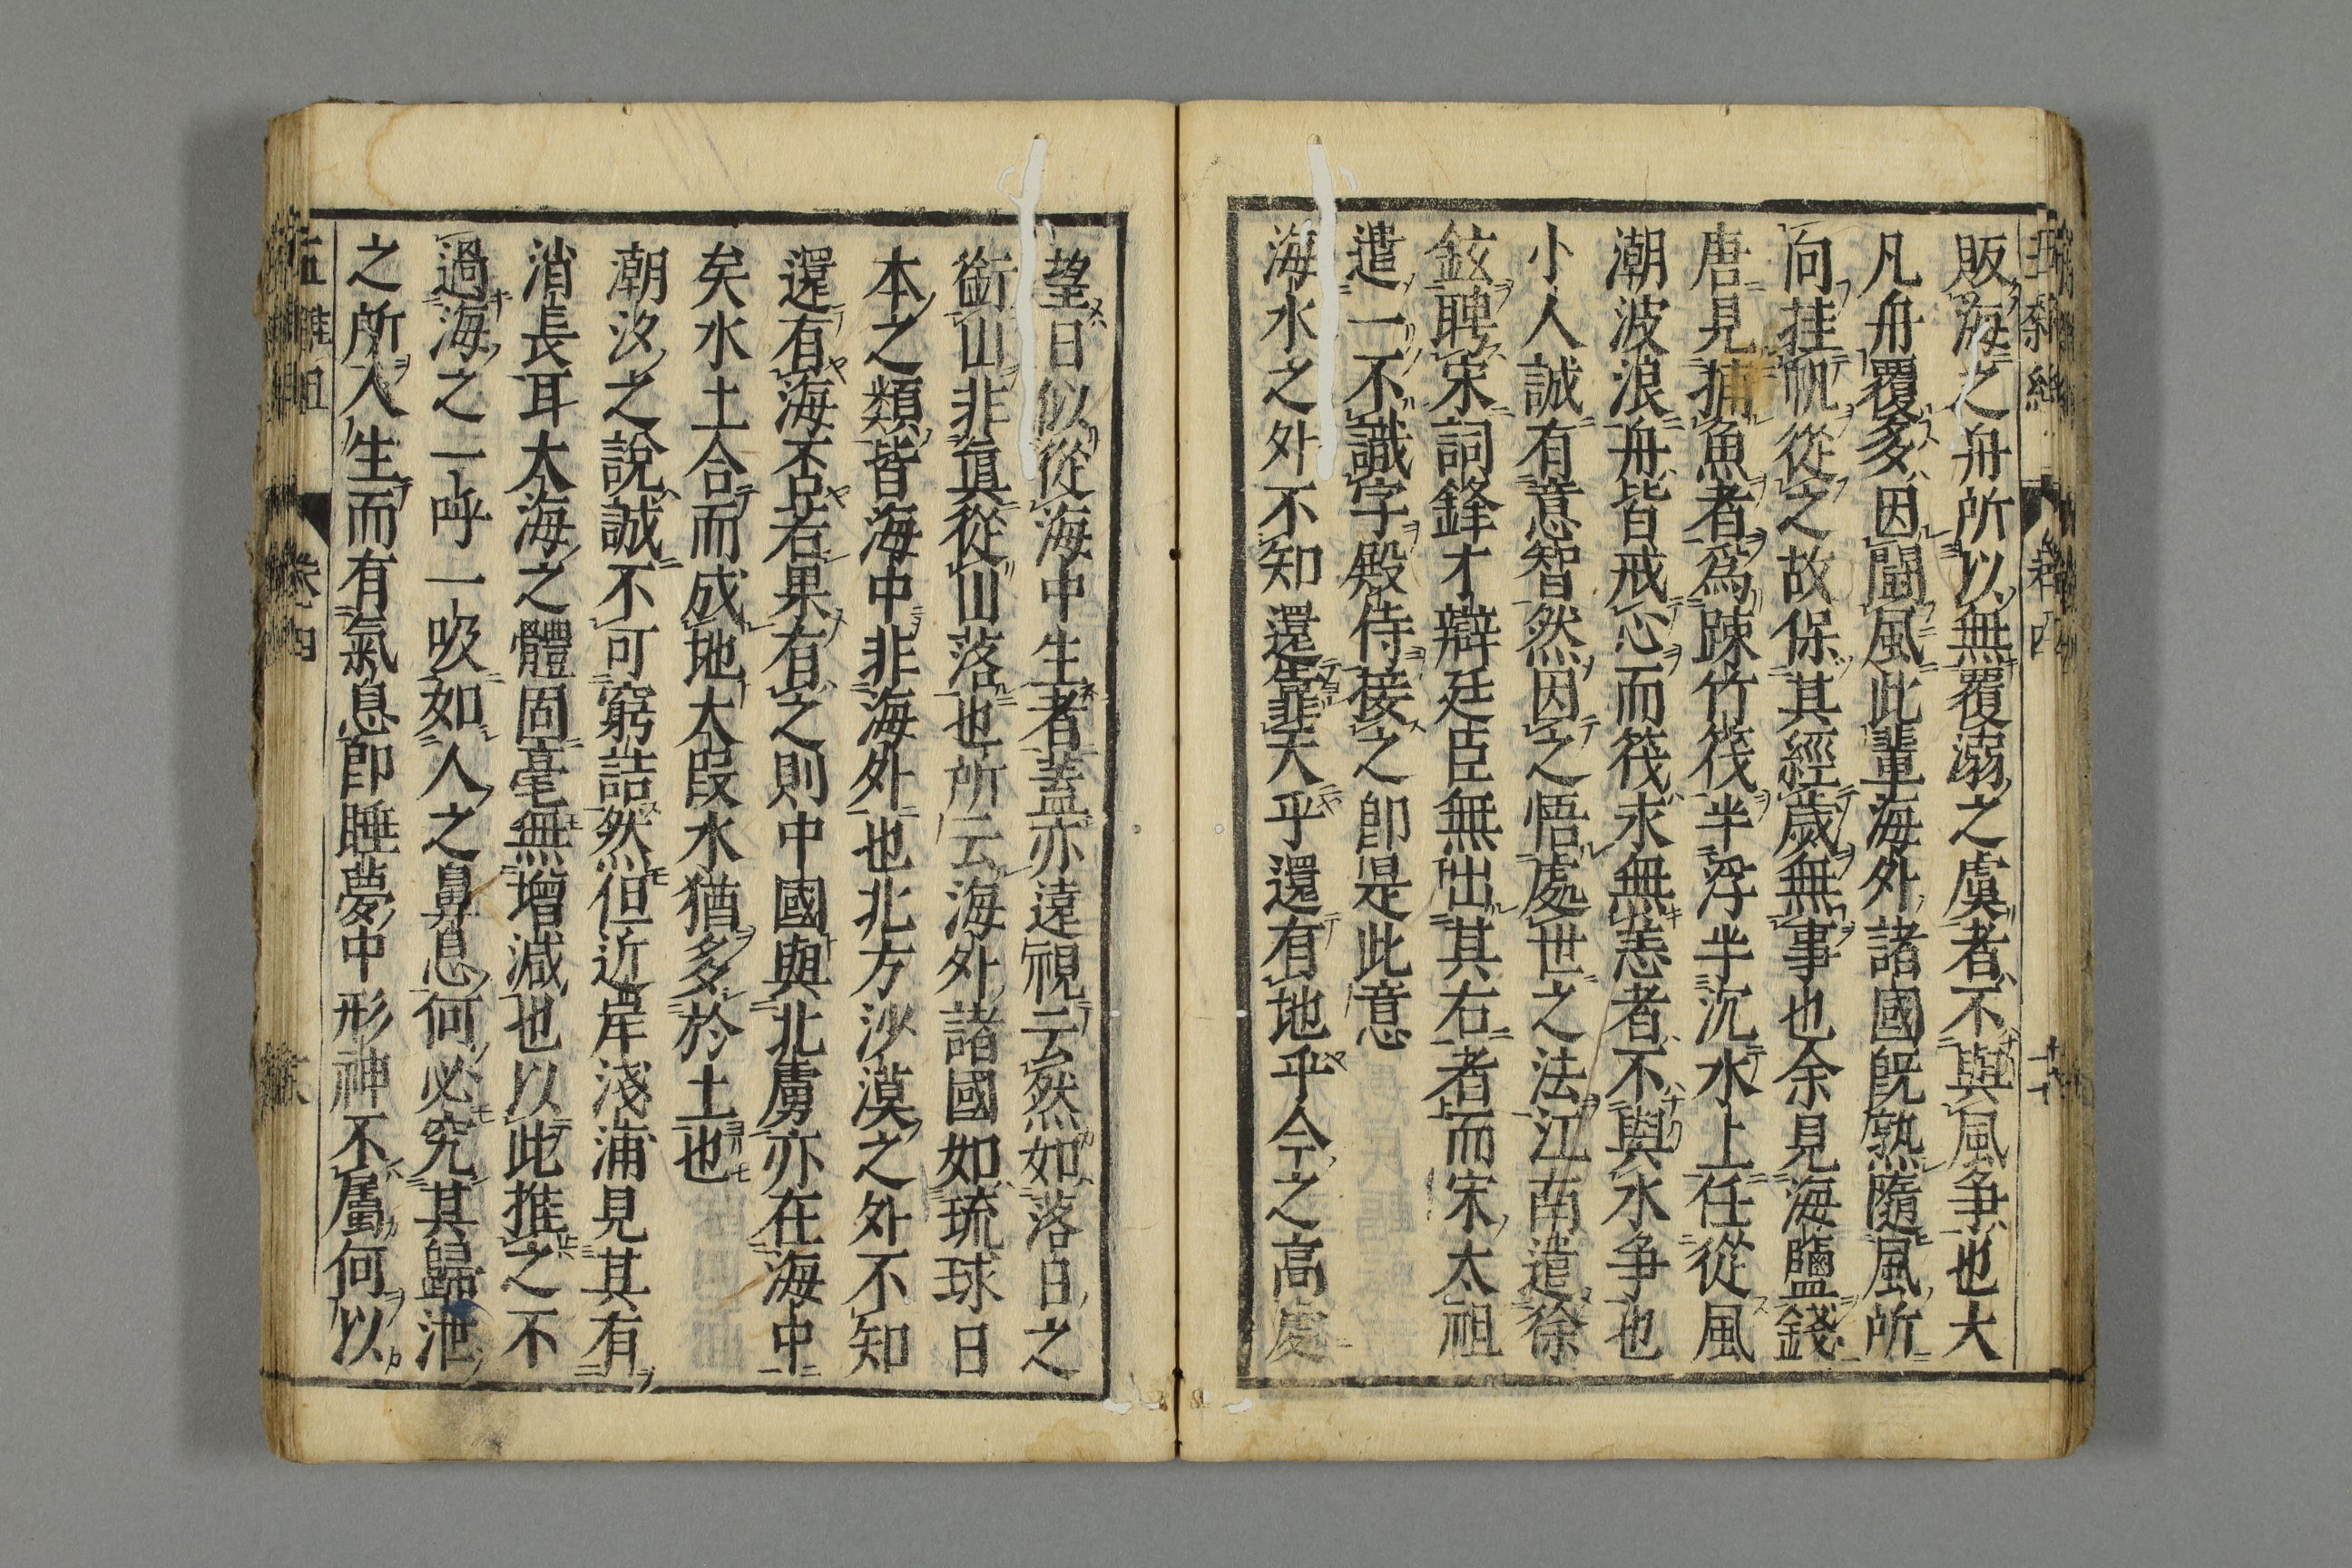 販海之舟所以無覆溺之虞者不與風争也大
凡舟覆多因鬪風此輩海外諸國旣熟隨風所
向挂帆從之故保其經歲無事也余見海鹽錢
唐見捕魚者爲疎竹筏半浮半沉水上任從風
潮波浪舟皆戒心而筏永無恙者不與水争也
小人誠有意智然因之悟處世之法江南遣徐
鉉聘宋詞鋒才辯廷臣無出其右者而宋太祖
遣一不識字殿侍接之卽是此意
海水之外不知還靠天乎還有地乎今之高處
望日似從海中生者蓋亦遠視云然如落日之
銜山非眞從山落也所云海外諸國如琉球日
本之類皆海中非海外也北方沙漠之外不知
還有海不足若果有之則中國與北虜亦在海中
矣水土合而成地大段水猶多於土也
潮汐之說誠不可窮詰然但近岸淺浦見其有
消長耳大海之體固毫無增減也以此推之不
過海之一呼一吸如人之鼻息何必究其歸泄
之所人生而有氣息卽睡夢中形神不屬何以
五雜俎
卷四